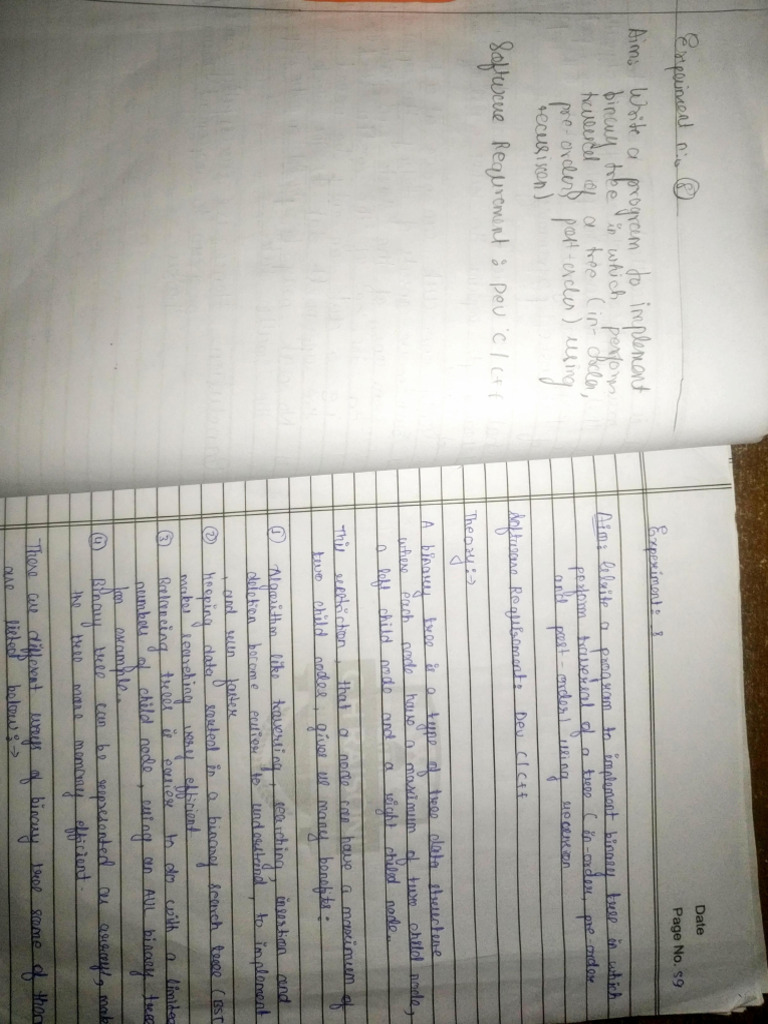 Experiment no ⑧
Aim: Write a program to implement
binary tree in which perform
traversal of a tree (in-order,
pre-order, post-order) using
recursion)
Software Requirement : Dev C/C++
Date
Page No. 59
Experiment: 8
Aim: Write a program to implement binary tree in which
perform traversal of a tree (in-order, pre-order
and post-order) using recursion
Software Requirement: Dev C/C++
Theory:→
A binary tree is a type of tree data structure
where each node have a maximum of two child node,
a left child node and a right child node.
This restriction, that a node can have a maximum of
two child nodes, give us many benefits:
① Algorithm like traversing, searching, insertion and
deletion become easier to understand, to implement
, and run faster
② keeping data sorted in a binary search tree (BST
makes searching very efficient
③ Balancing trees is easier to do with a limited
number of child node, using an AVL binary tree
for example.
④ Binary tree can be represented as arrays, mak
the tree more memory efficient.
There are different ways of binary tree some of them
are listed below:→